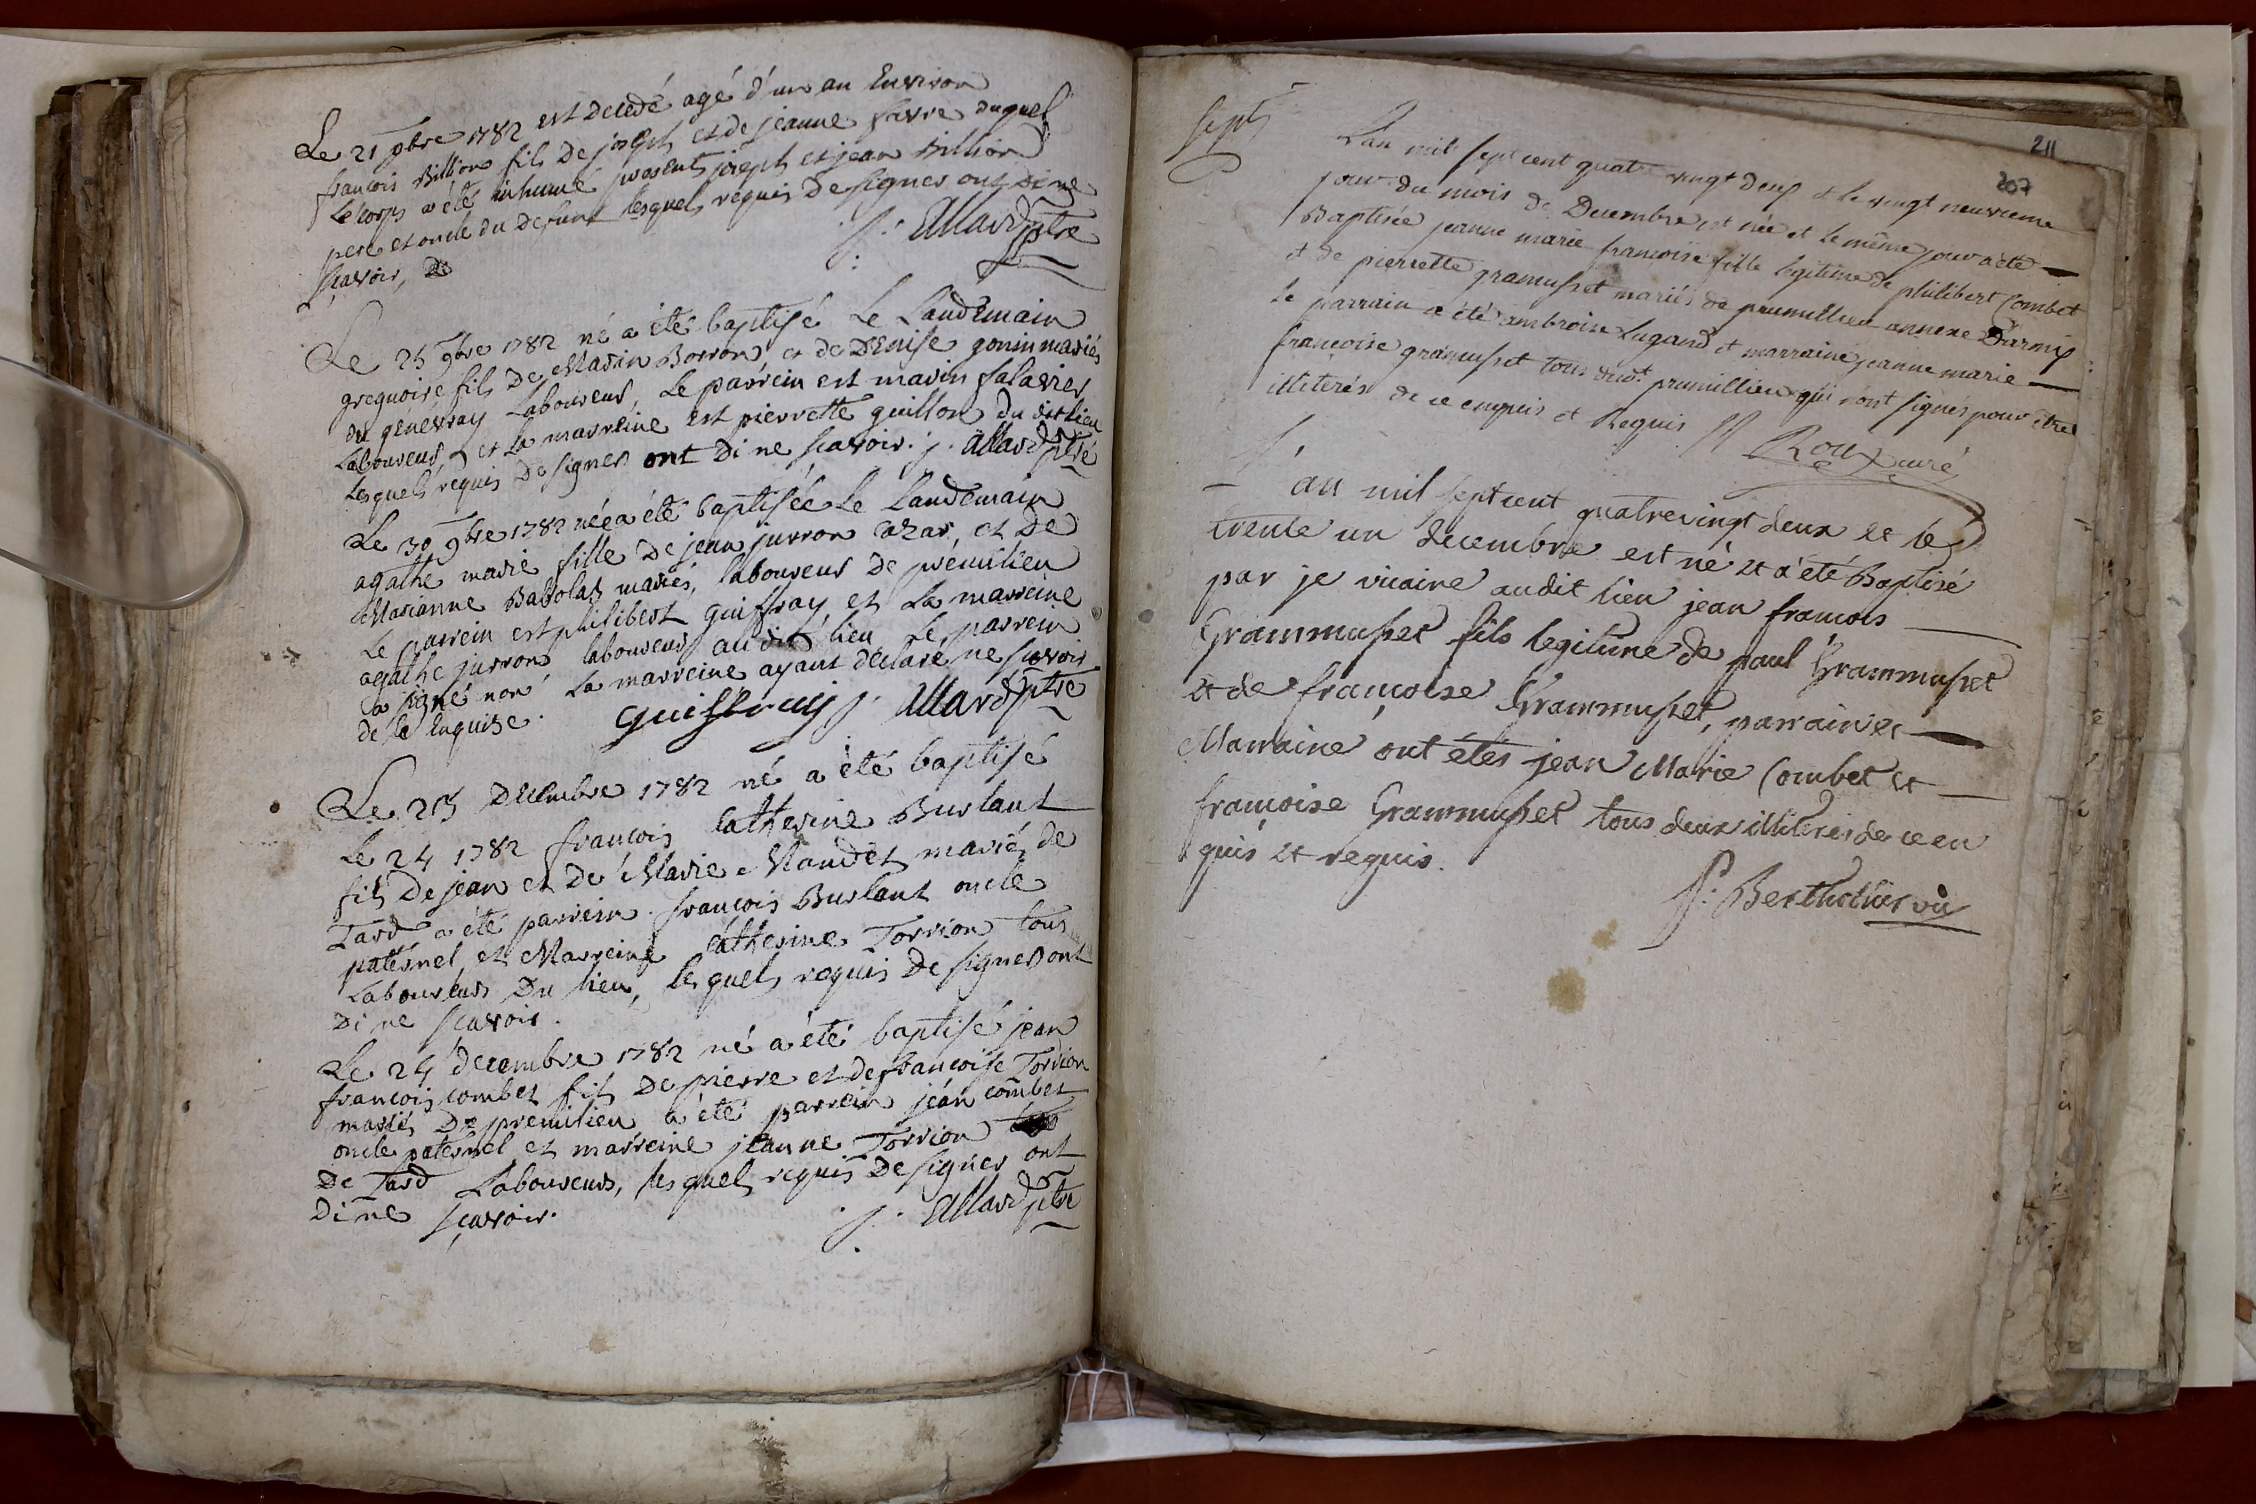 Le 21 9bre 1782 est decedé agé d'un an Environ
francois Billion fils De joseph et de jeanne favre duquel
Le corps a été inhumé presents joseph et jean Billion
pere et oncle du Defunt lesquels requis de signer ont di ne
sçavoir, de
j. Allard ptre
Le 25 9bre 1782 né a été baptisé Le Landemain
gregnoire fils De Marin Borron et de Denise gonin mariés
du genévray Laboureur, Le parrein est marin falavier
Laboureur, et La marreine est pierrette guillon du dit lieu
Lesquels requis de signer ont Di ne scavoir. j. allard ptre
Le 30 9bre 1782 née a été baptisée Le Landemain
agathe marie fille De jean jurron cazar, et De
Marianne Babolat mariés, laboureur de premilieu
Le parrein est philibert guiffray et La marreine
agathe jurron laboureurs au dit lieu Le parrein
a signé non La marreine ayant declaré ne scavoir
de ce Enquise. guiffray j. allard ptre
Le 23 Decembre 1782 né a été baptisé
Le 24 1782 francois Catherine Burlant
fils de jean et de Marie Naudet mariés de
Tard a été parrein francois Burlant oncle
paternel et Marreine Catherine Torrion tous
Laboureurs Du lieu, lesquels requis De signer ont
Di ne scavoir.
Le 24 decembre 1782 né a été baptisé jean
francois combet fils De pierre et de francoise Torrion
mariés De premilieu a été parrein jean combet
oncle paternel et marreine jeanne Torrion
De Tard Laboureurs, lesquels requis De signer ont
Di ne sçavoir.
j. Allard ptre
sept
211
207
L'an mil sept cent quatre vingt deux et le vingt neuvieme
jour du mois de Decembre est née et le même jour a été
Baptisée jeanne marie françoise fille legitime de philibert Combet
et de pierrette gramusset mariés de prumillieu annexe Darmix
le parrain a été ambroise Lugand et marraine jeanne marie
françoise gramusset tous deux prumillieu qui n'ont signés pour être
illiterés de ce enquis et Requis
Roux curé
L'an mil sept cent quatrevingt deux et le
trente un decembre est né et a été Baptisé
par je vicaire audit lieu jean francois
Grammusset fils legitime de paul Grammusset
et de françoise Grammusset, parrain et
Marraine ont étés jean Marie Combet et
françoise Grammusset tous deux illiterés de ce en
quis et requis.
Berthelier vic